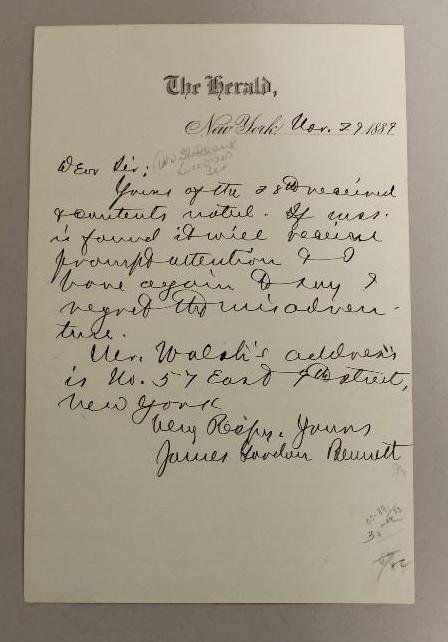 The Herald,
New York, Nov. 29 1889
Dear Sir;
Yours of the 28th received
& contents noted. If mss.
is found it will receive
prompt attention & I
have again to say I
regret the misadven-
ture.
Mr. Walsh's address
is No. 57 East 9th street,
New York
Very Respy. Yours
James Gordon Bennett